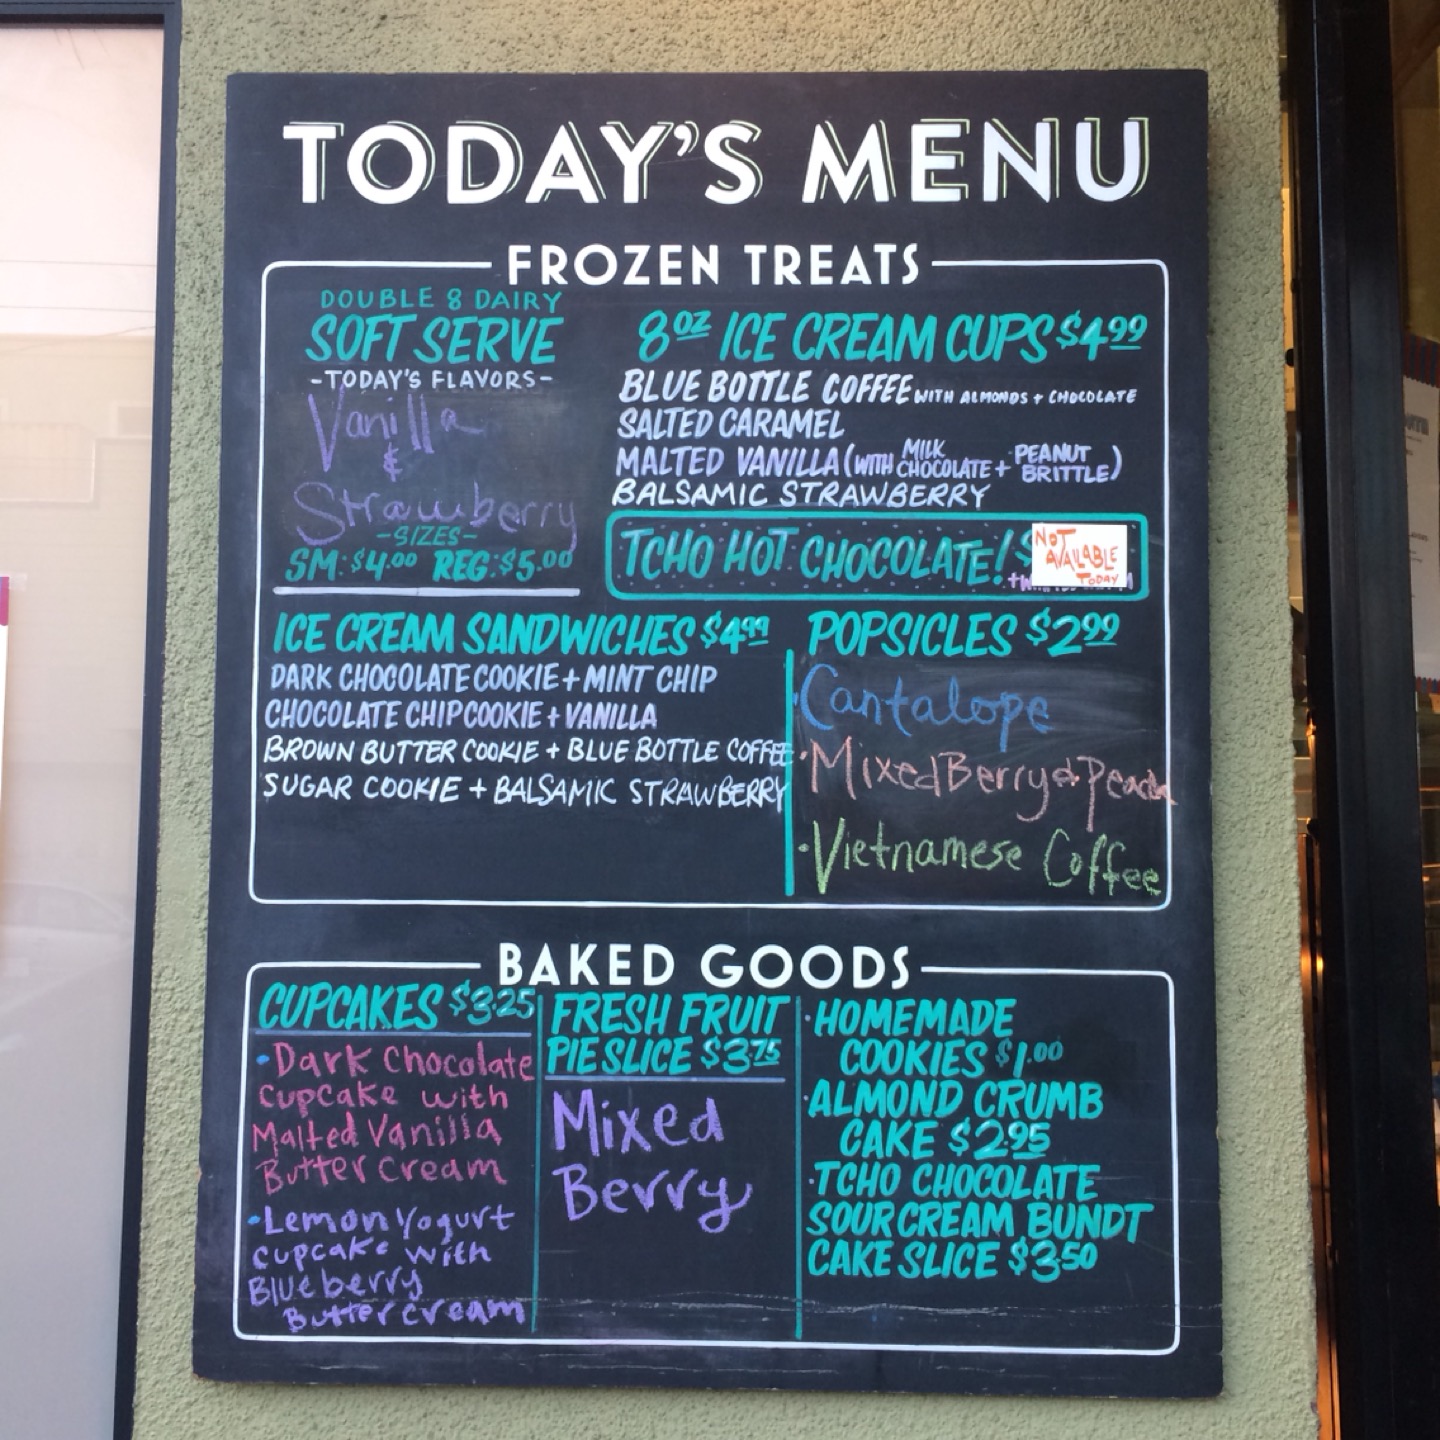 TODAY'S MENU
FROZEN TREATS
DOUBLE 8 DAIRY
SOFT SERVE
-TODAY'S FLAVORS-
Vanilla
&
Strawberry
-SIZES-
SM: $4.00 REG: $5.00
8oz ICE CREAM CUPS $4.99
BLUE BOTTLE COFFEE WITH ALMONDS + CHOCOLATE
SALTED CARAMEL
MALTED VANILLA (WITH MILK CHOCOLATE + PEANUT BRITTLE)
BALSAMIC STRAWBERRY
TCHO HOT CHOCOLATE! $
NOT
AVAILABLE
TODAY
ICE CREAM SANDWICHES $4.99
DARK CHOCOLATE COOKIE + MINT CHIP
CHOCOLATE CHIP COOKIE + VANILLA
BROWN BUTTER COOKIE + BLUE BOTTLE COFFEE
SUGAR COOKIE + BALSAMIC STRAWBERRY
POPSICLES $2.99
·Cantalope
·Mixed Berry & Peach
·Vietnamese Coffee
BAKED GOODS
CUPCAKES $3.25
·Dark Chocolate
Cupcake with
Malted Vanilla
Butter cream
·Lemon Yogurt
Cupcake with
Blueberry
Buttercream
FRESH FRUIT
PIE SLICE $3.75
Mixed
Berry
·HOMEMADE
COOKIES $1.00
·ALMOND CRUMB
CAKE $2.95
·TCHO CHOCOLATE
SOUR CREAM BUNDT
CAKE SLICE $3.50